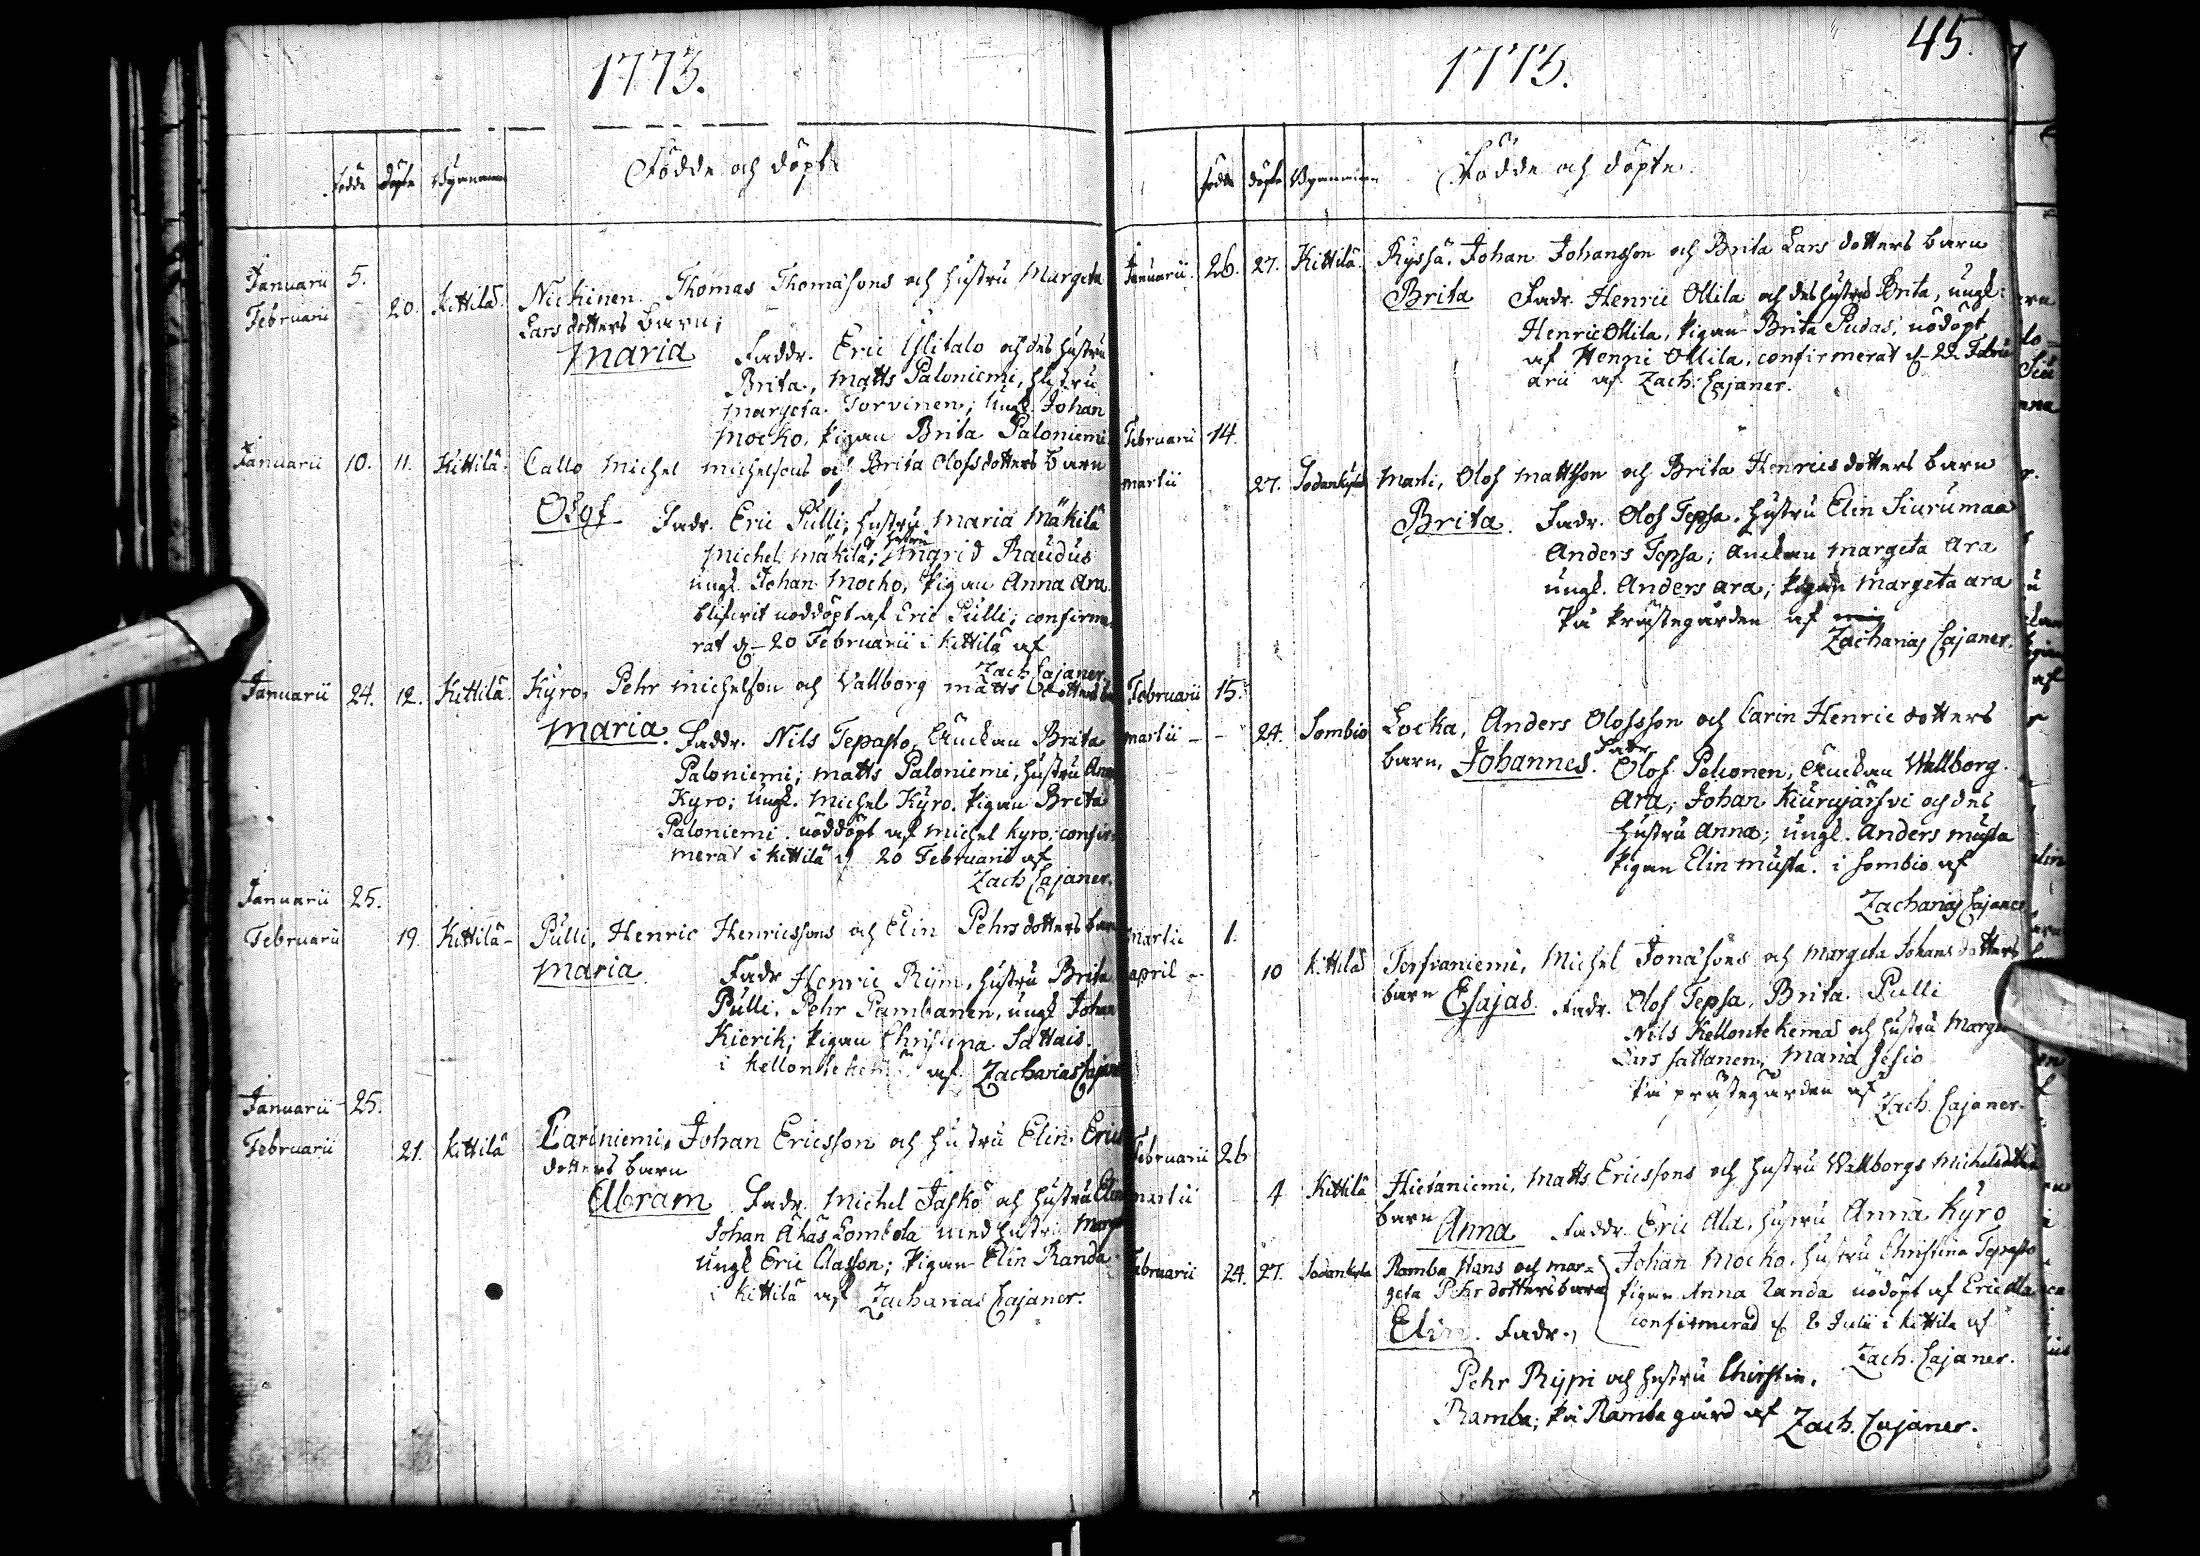 1773.
Födde och döpte
födde döpte Byarnamn
Januarii 5.
Februarii 20. Kittilä. Nickinen Thomas Thomæsons och hustru Margeta
Lars dotters barn;
Maria Faddr. Eric Ylitalo och des hustru
Brita, Matts Paloniemi, hustru
Margeta Torvinen; Ungk. Johan
Mocko, pigan Brita Paloniemi
Januarii 10. 11. Kittilä. Callo Michel Michelsons och Brita Olofsdotters barn
Olof Fadr. Eric Pulli, hustru Maria Mäkilä
Michel Mäkilä; hustru Ingrid Raudus
ungk. Johan Mocko, pigan Anna Ara
blifvit nöddöpt af Eric Pulli; confirme-
rat d. 20 Februarii i Kittilä af
Zach. Cajaner.
Januarii 24. 12. Kittilä. Kyro, Pehr Michelson och Vallborg Matts dotters
Maria. Faddr. Nils Tepasto, Änckan Brita
Paloniemi; Matts Paloniemi, hustru Anna
Kyro; Ungk. Michel Kyro. pigan Brita
Paloniemi. nöddöpt af Michel Kyro; confir-
merat i Kittilä d 20 Februarii af
Zach Cajaner.
Januarii 25.
Februarii 19. Kittilä Pulli, Henric Henricssons och Elin Pehrsdotters barn
Maria Fadr Henric Rijm, hustru Brita
Pulli, Pehr Pambanen, ungk Johan
Kierik; pigan Christina Sattais.
i af Zacharias Cajaner
Januarii 25.
Februarii 21. Kittilä Lariniemi, Johan Ericsson och hustru Elin Erics
dotters barn
Abram Fadr. Michel Jasko och hustru
Johan Äkäs Lombola med hustru
Ungk Eric Classon; pigan Elin Randa
i Kittilä af Zacharias Cajaner.
45.
1773.
Födde och döpte
födde döpte Byarnamn
Januarii. 26. 27. Kittilä. Ryssä. Johan Johansson och Brita Lars dotters barn
Brita Fadr. Henric Ollila och des hustru Brita, ungk:
Henric Ollila, pigan Brita Pudas; nödöpt
af Henric Ollila, confirmerat d. 22. Febru
arii af Zach: Cajaner.
Februarii 14.
Martii 27. Sodankylä Marti, Olof Mattsson och Brita Henricsdotters barn
Brita. Fadr. Olof Tepsa. hustru Elin Siurumaa
Anders Tepsa; Änckan Margeta Ara
ungk. Anders Ara; pigan Margeta Ara
på Prästegården af
Zacharias Cajaner.
Februarii 15.
Martii 24. Sombio Locka, Anders Olofsson och Carin Henric dotters
barn, Johannes. Fadr Olof Pelconen, Änckan Wallborg.
Ara, Johan Kiurujärfvi och des
hustru Anna; ungk. Anders Musta
pigan Elin Musta. i Sombio af
Zacharias Cajaner
Martii 1.
April 10 Kittilä Torfvaniemi, Michel Jonæsons och Margeta Johans dotters
barn Esajas. Fadr. Olof Tepsa, Brita Pulli
Nils Kellontekemä och hustru
Lars Sattanen, Maria Jesio
på prästegården af
Zach. Cajaner.
Februarii 26
Martii 4 Kittilä Hietaniemi, Matts Ericssons och hustru Wallborgs Michelsdotters
barn Anna Faddr. Eric Ala, hustru Anna Kyro
Johan Mocko, hustru Christina Tepasto
pigan Anna Randa nödöpt af Eric Ala
confirmerad d. 8 Julii i Kittilä af
Zach. Cajaner.
Februarii 24. 27. Sodankylä Ramba Hans och Mar-
geta Pehrsdotters barn
Elin. Fadr.
Pehr Rijpi och hustru Christin.
Ramba; på Ramba gård af Zach. Cajaner.